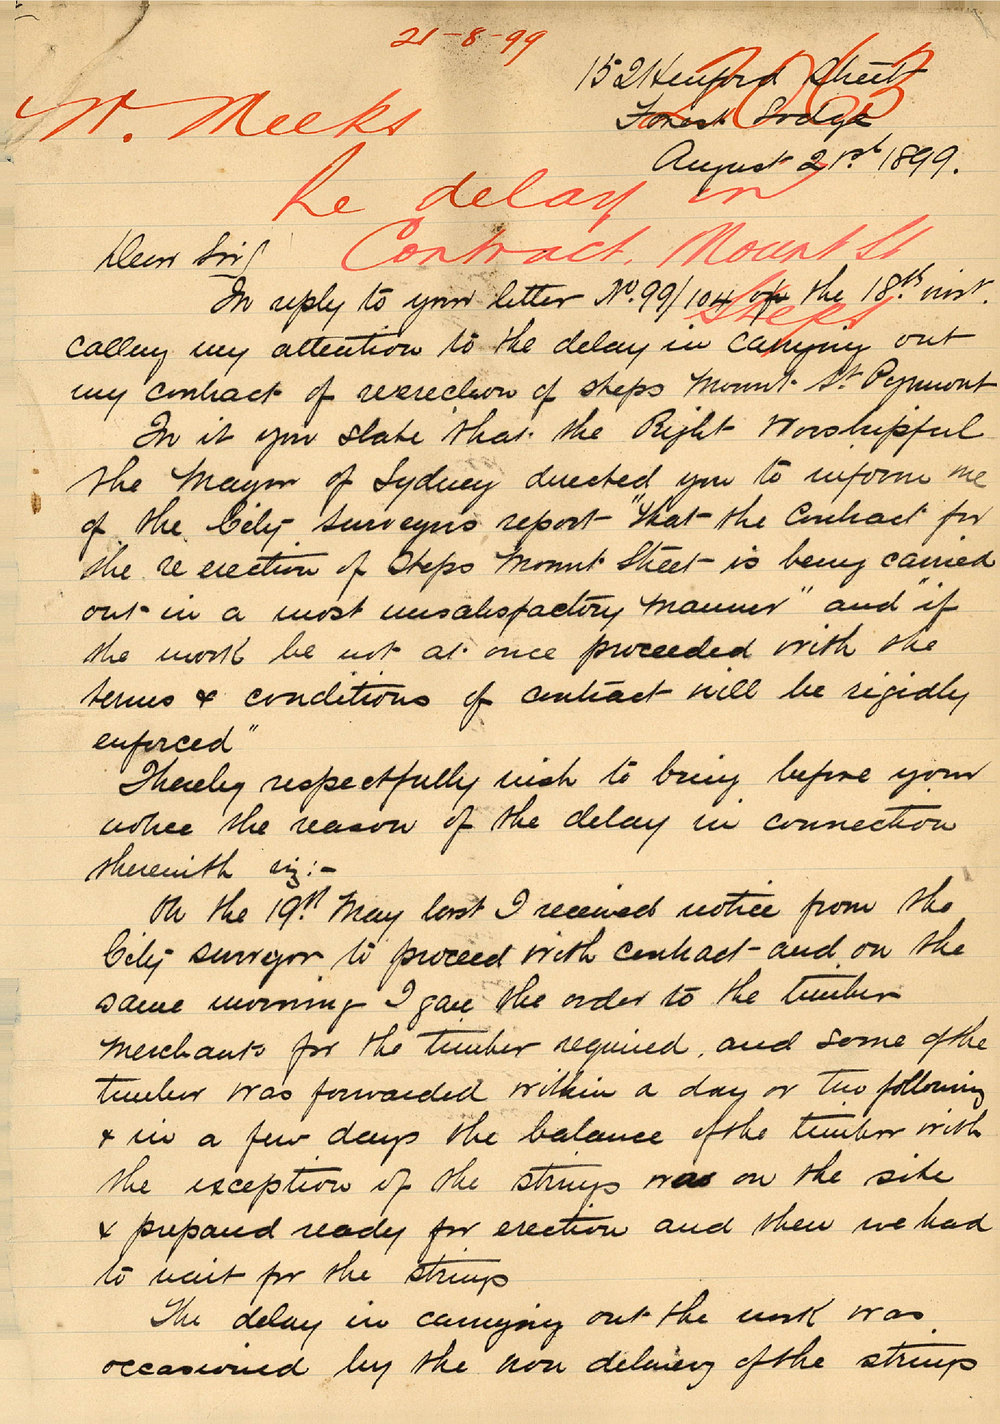 21-8-99
2063
152 Hereford Street
Forest Lodge
August 21st 1899.
W. Meeks
Re delay in
Contract. Mount St
Steps
Dear Sir/
In reply to your letter No. 99/104 of the 18th inst.
calling my attention to the delay in carrying out
my contract of reerection of steps Mount St Pyrmont
In it you state that the Right Worshipful
the Mayor of Sydney directed you to inform me
of the City Surveyors report "that the contract for
the re erection of Steps Mount Street is being carried
out in a most unsatisfactory manner" and "if
the work be not at once proceeded with the
terms & conditions of contract will be rigidly
enforced"
I hereby respectfully wish to bring before your
notice the reason of the delay in connection
therewith viz:-
On the 19th May last I received notice from the
City surveyor to proceed with contract and on the
same morning I gave the order to the timber
merchants for the timber required, and some of the
timber was forwarded within a day or two following
& in a few days the balance of the timber with
the exception of the strings was on the site
& prepared ready for erection and then we had
to wait for the strings
The delay in carrying out the work was
occasioned by the non delivery of the strings